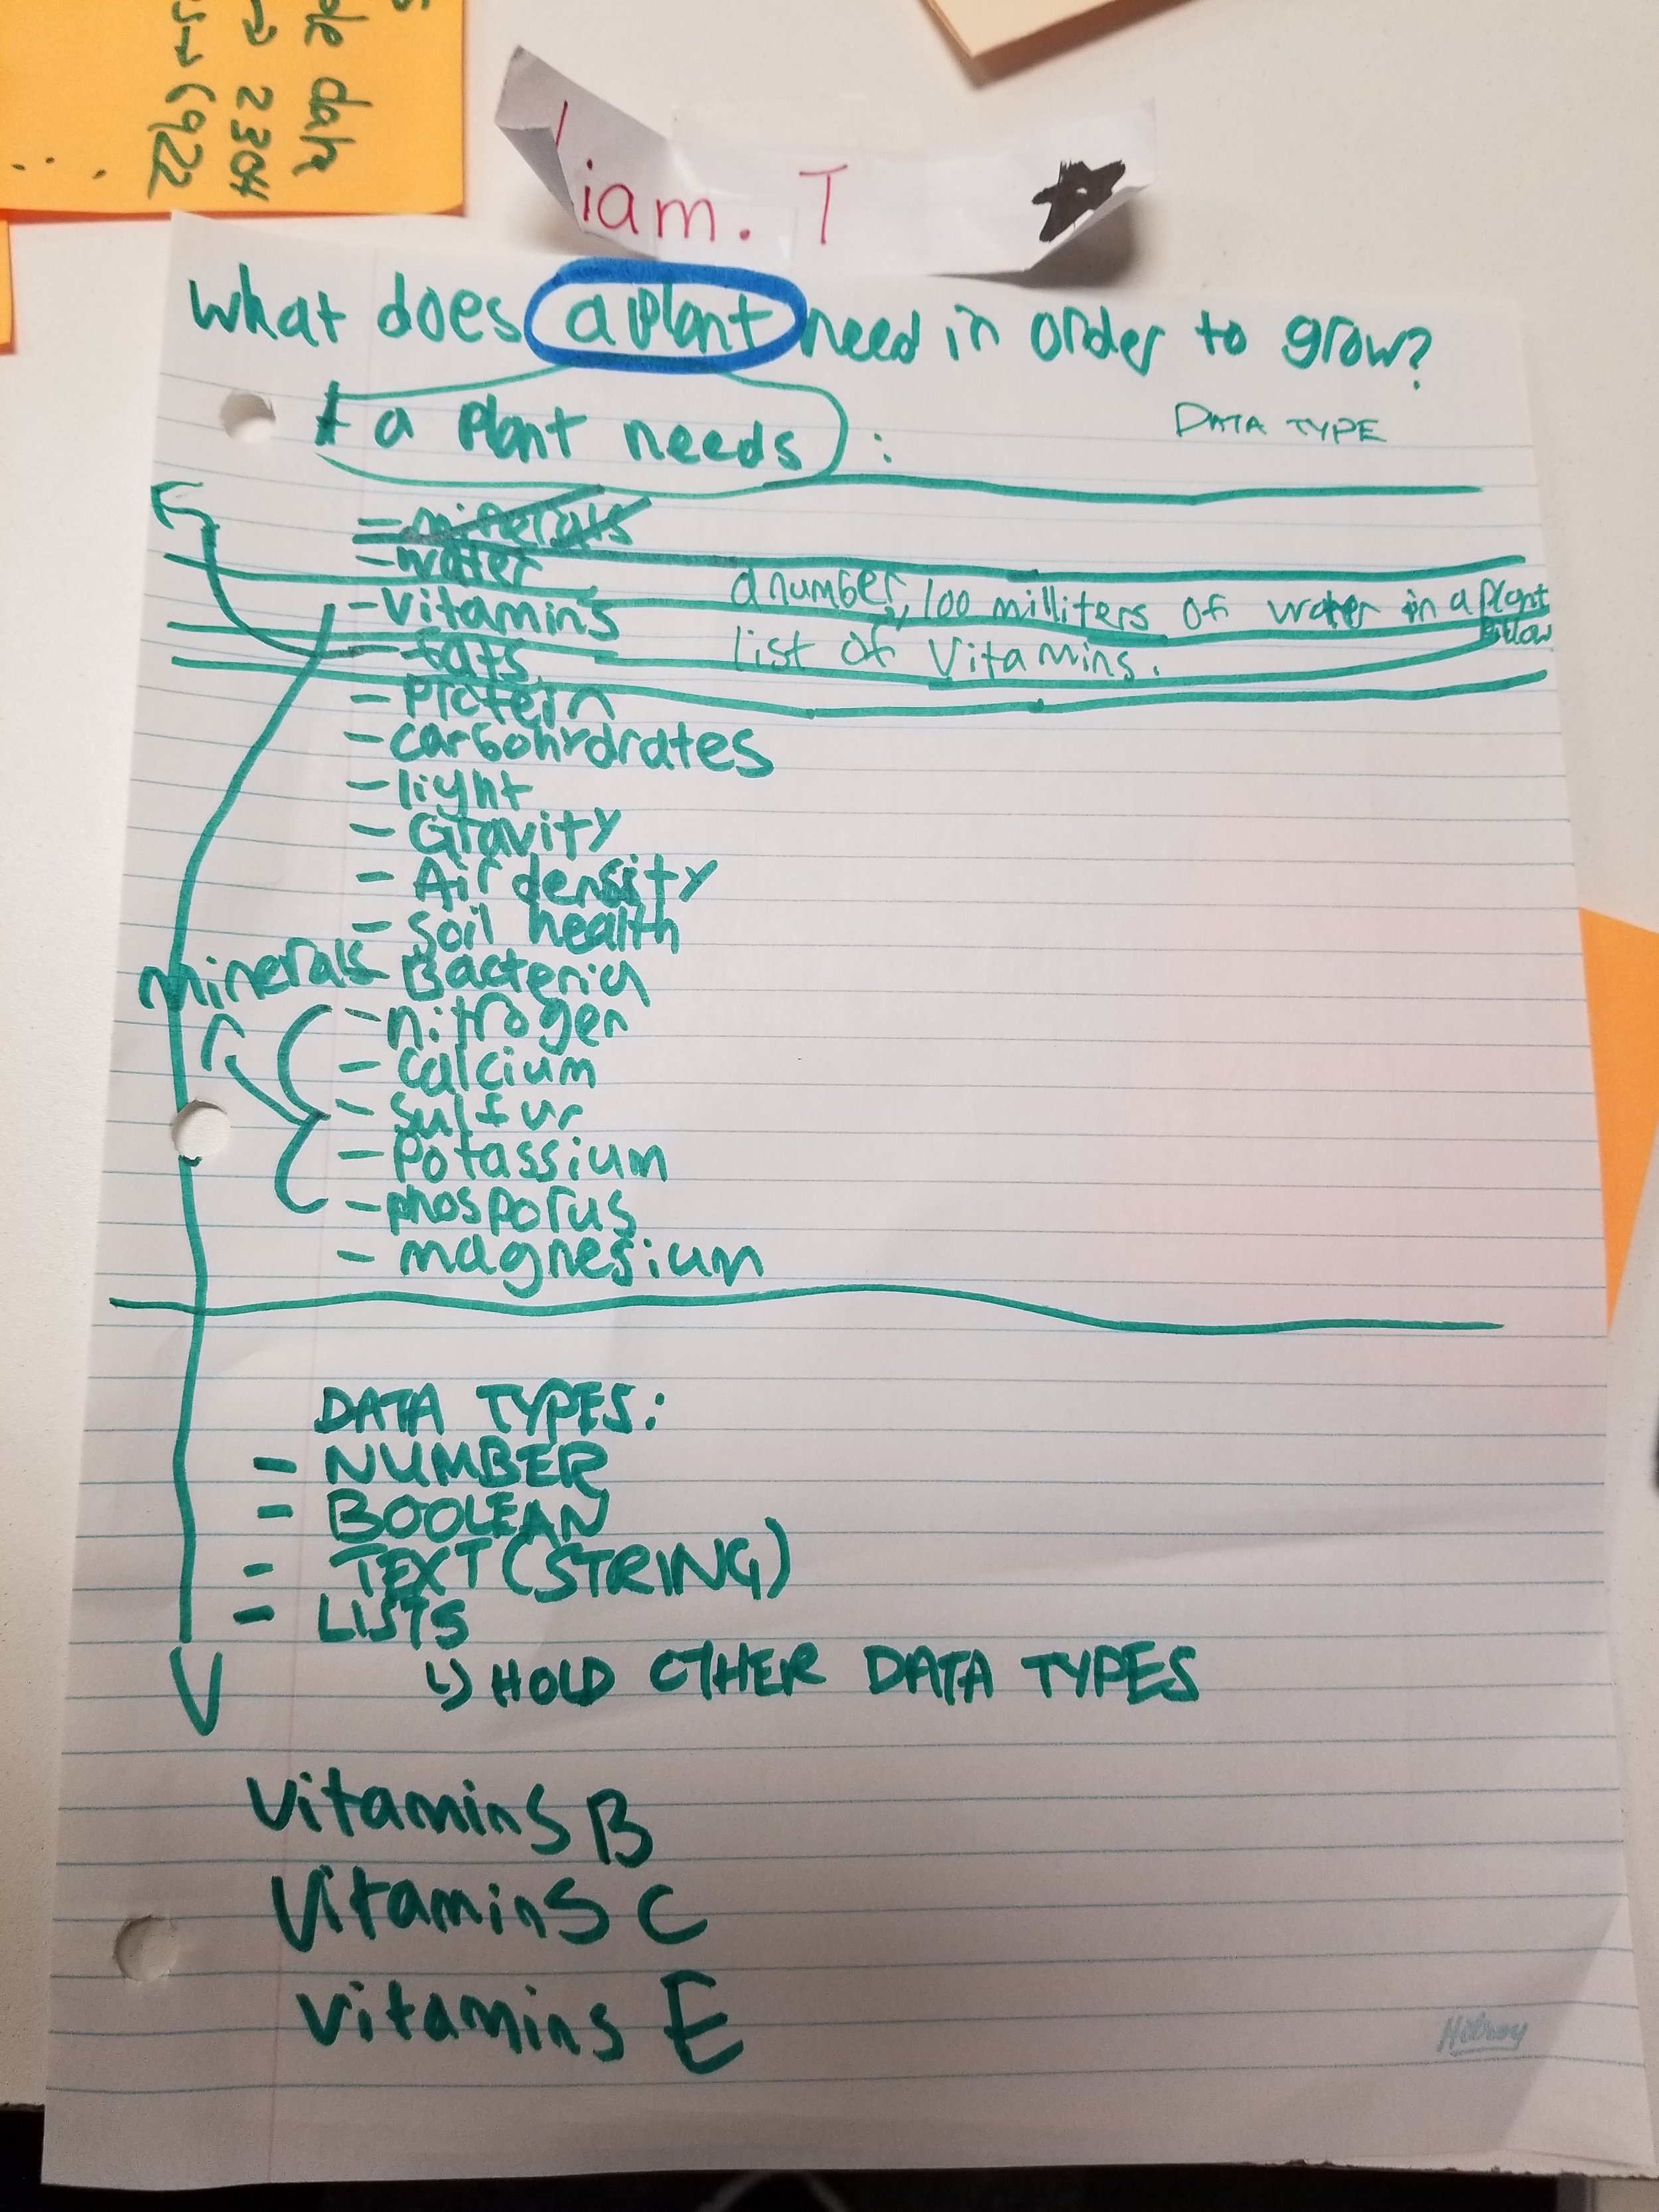 de dah
→ 2304
→ 6922
...
iam. T
what does a plant need in order to grow?
a plant needs :
DATA TYPE
- minerals
- water
a number, 100 milliters of water in a plant
- vitamins
list of vitamins.
- fats
- Protein
- carbohydrates
- light
- Gravity
- Air density
- soil health
minerals Bacteria
- nitrogen
- calcium
- sulfur
- Potassium
- phosporus
- magnesium
DATA TYPES:
- NUMBER
- BOOLEAN
- TEXT (STRING)
- LISTS
↳ HOLD OTHER DATA TYPES
vitamins B
vitamins C
vitamins E
Hilroy